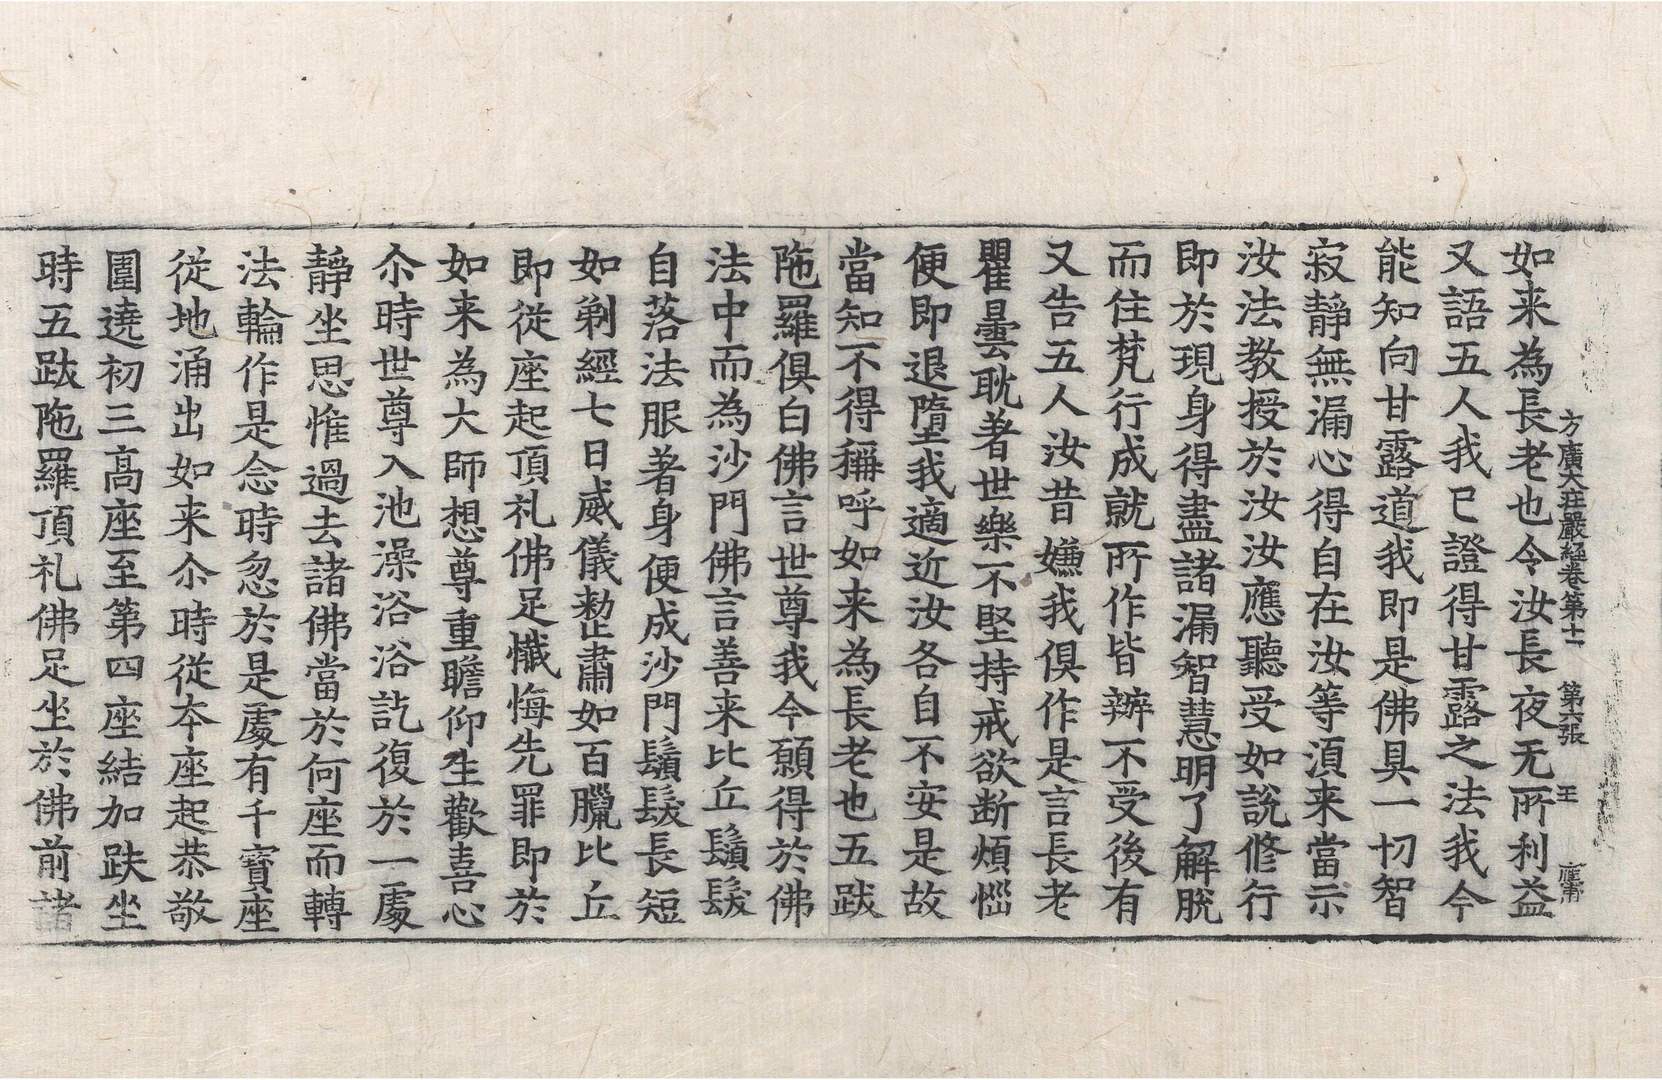 方廣大莊嚴經卷第十一　第六張　王
如来為長老也令汝長夜无所利益
又語五人我已證得甘露之法我今
能知向甘露道我即是佛具一切智
寂静無漏心得自在汝等湏来當示
汝法教授於汝汝應聽受如說俢行
即於現身得盡諸漏智慧明了解脫
而住梵行成就所作皆辦不受後有
又告五人汝昔嫌我俱作是言長老
瞿曇耽著世樂不堅持戒欲断煩惱
便即退墮我適近汝各自不安是故
當知不得稱呼如来為長老也五跋
陁羅俱白佛言世尊我今願得於佛
法中而為沙門佛言善来比丘鬚髮
自落法服著身便成沙門鬚髮長短
如剃經七日威儀整肅如百臘比丘
即從座起頂礼佛足懺悔先罪即於
如来為大師想尊重瞻仰生歡喜心
尒時世尊入池澡浴浴訖復於一處
静坐思惟過去諸佛當於何座而轉
法輪作是念時忽於是處有千寶座
從地涌出如来尒時從本座起恭敬
圍遶初三高座至第四座結加趺坐
時五跋陁羅頂礼佛足坐於佛前諸